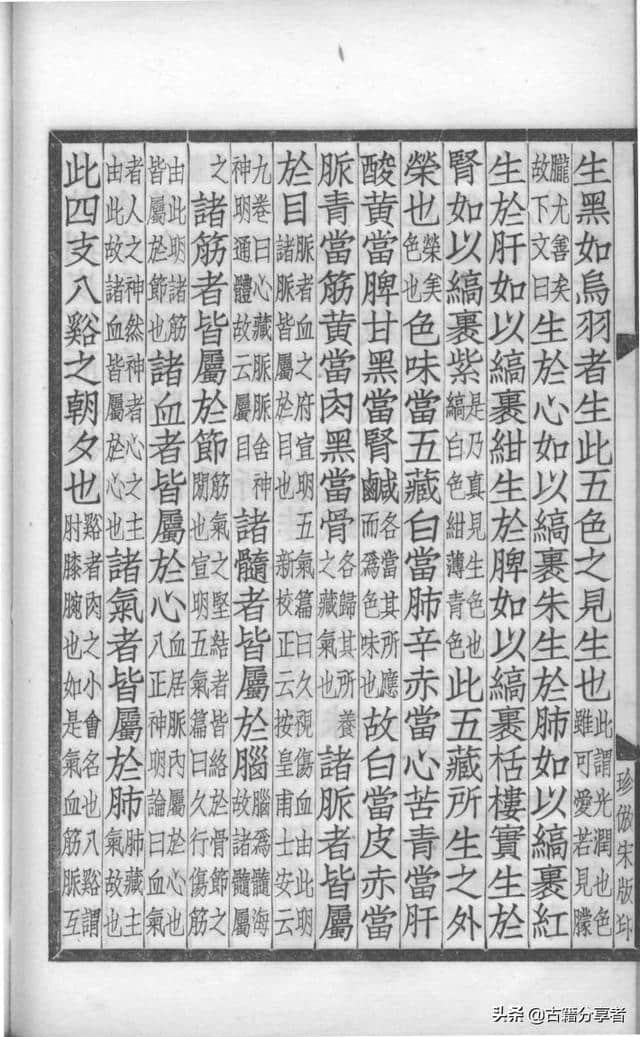 生黑如烏羽者生此五色之見生也此謂光潤也色雖可愛若見朦
朧尤善矣故下文曰生於心如以縞裹朱生於肺如以縞裹紅
生於肝如以縞裹紺生於脾如以縞裹栝樓實生於
腎如以縞裹紫是乃真見生色也縞白色紺薄青色此五藏所生之外
榮也榮美色也色味當五藏白當肺辛赤當心苦青當肝
酸黃當脾甘黑當腎鹹各當其所應而爲色味也故白當皮赤當
脈青當筋黃當肉黑當骨各歸其所養之藏氣也諸脈者皆屬
於目脈者血之府宣明五氣篇曰久視傷血由此明諸脈皆屬於目也新校正云按皇甫士安云
九卷曰心藏脈脈舍神神明通體故云屬目諸髓者皆屬於腦腦爲髓海故諸髓屬
之諸筋者皆屬於節筋氣之堅結者皆絡於骨節之閒也宣明五氣篇曰久行傷筋
由此明諸筋皆屬於節也諸血者皆屬於心血居脈內屬於心也八正神明論曰血氣
者人之神然神者心之主由此故諸血皆屬於心也諸氣者皆屬於肺肺藏主氣故也
此四支八谿之朝夕也谿者肉之小會名也八谿謂肘膝腕也如是氣血筋脈互
珍倣宋版印
头条 @古籍分享者